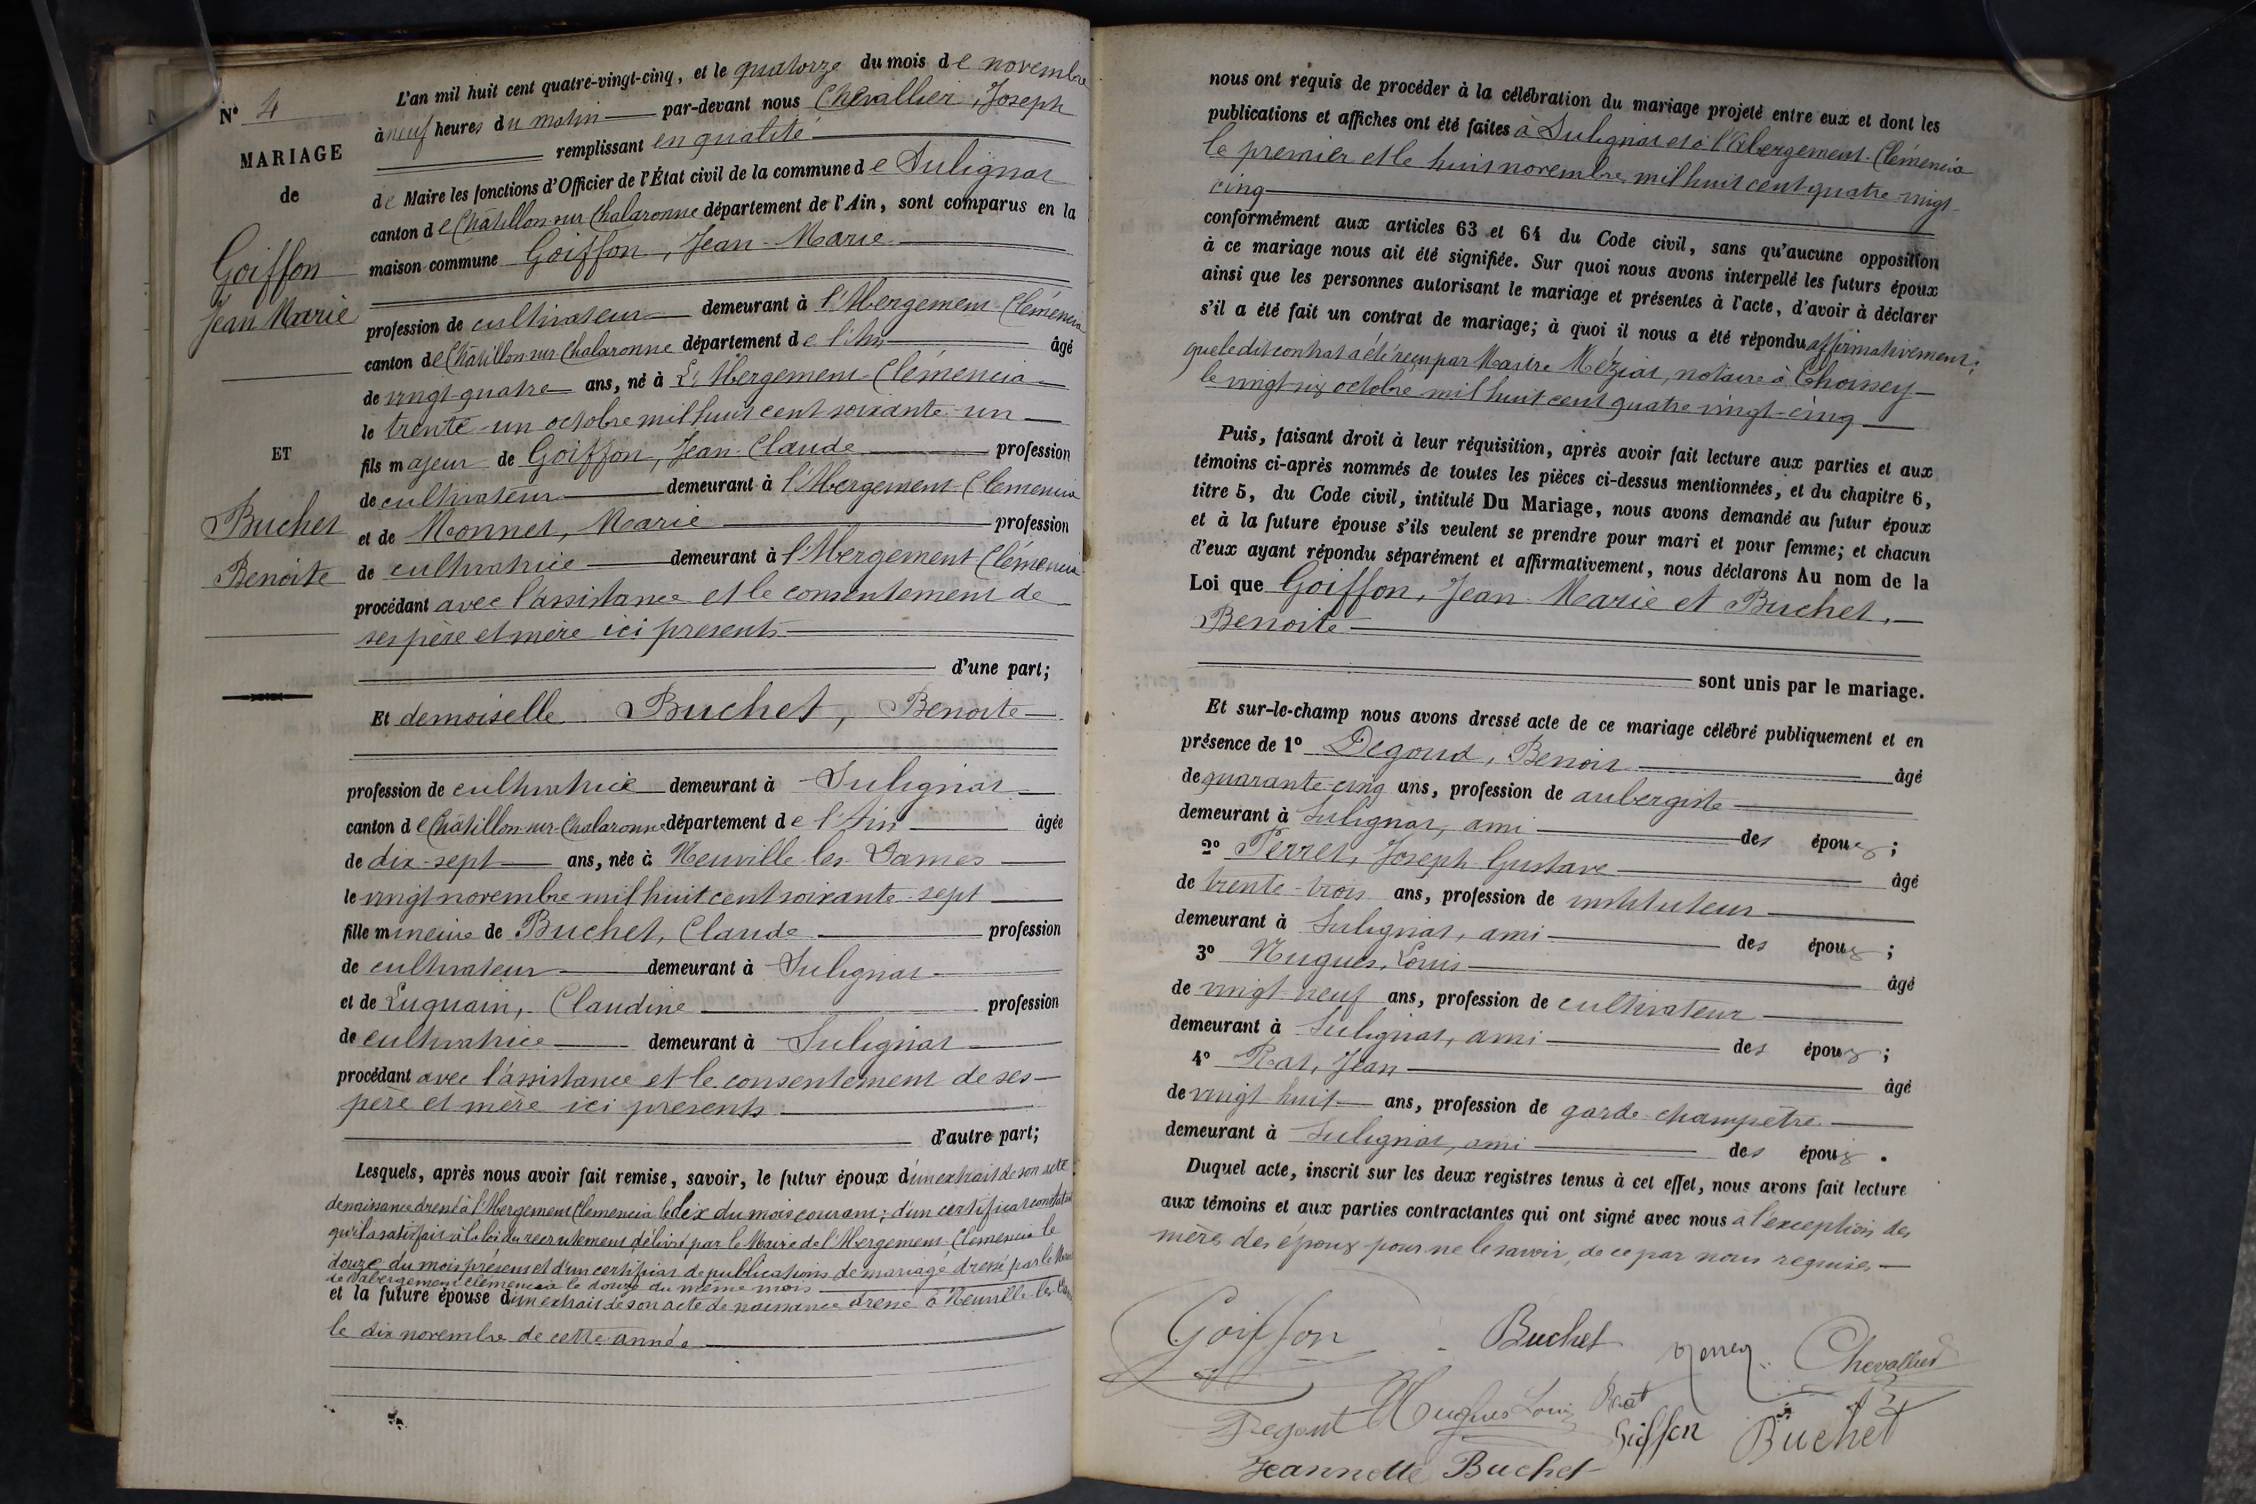 N° 4
MARIAGE
de
Goiffon
Jean Marie
ET
Buchet
Benoite
L'an mil huit cent quatre-vingt-cinq, et le quatorze du mois de novembre
à neuf heures du matin par-devant nous Chevallier, Joseph
remplissant en qualité
de Maire les fonctions d'Officier de l'État civil de la commune de Sulignat
canton de Châtillon-sur-Chalaronne département de l'Ain, sont comparus en la
maison commune Goiffon, Jean-Marie
profession de cultivateur demeurant à l'Abergement-Clémencia
canton de Châtillon-sur-Chalaronne département de l'Ain âgé
de vingt-quatre ans, né à L'Abergement-Clémencia
le trente-un octobre mil huit cent soixante-un
fils majeur de Goiffon, Jean-Claude profession
de cultivateur demeurant à l'Abergement-Clemencia
et de Monnet, Marie profession
de cultivatrice demeurant à l'Abergement Clémencia
procédant avec l'assistance et le consentement de
ses père et mère ici présents
d'une part;
Et demoiselle Buchet, Benoite
profession de cultivatrice demeurant à Sulignat
canton de Châtillon-sur-Chalaronne département de l'Ain âgée
de dix-sept ans, née à Neuville-les-Dames
le vingt novembre mil huit cent soixante-sept
fille mineure de Buchet, Claude profession
de cultivateur demeurant à Sulignat
et de Luquain, Claudine profession
de cultivatrice demeurant à Sulignat
procédant avec l'assistance et le consentement de ses
père et mère ici présents
d'autre part;
Lesquels, après nous avoir fait remise, savoir, le futur époux d'un extrait de son acte
de naissance dressé à l'Abergement Clemencia le dix du mois courant; d'un certificat constatant
qu'il a satisfait à la loi du recrutement délivré par le Maire de l'Abergement-Clemencia le
douze du mois présent et d'un certificat de publications de mariage dressé par le Maire
de l'abergement clémencia le douze du même mois
et la future épouse d'un extrait de son acte de naissance dressé à Neuville-les-Dames
le dix novembre de cette année
nous ont requis de procéder à la célébration du mariage projeté entre eux et dont les
publications et affiches ont été faites à Sulignat et à l'Abergement-Clémencia
le premier et le huit novembre mil huit cent quatre-vingt-
cinq
conformément aux articles 63 et 64 du Code civil, sans qu'aucune opposition
à ce mariage nous ait été signifiée. Sur quoi nous avons interpellé les futurs époux
ainsi que les personnes autorisant le mariage et présentes à l'acte, d'avoir à déclarer
s'il a été fait un contrat de mariage; à quoi il nous a été répondu affirmativement;
que le dit contrat a été reçu par Maître Méziat, notaire à Thoissey
le vingt-six octobre mil huit cent quatre-vingt-cinq
Puis, faisant droit à leur réquisition, après avoir fait lecture aux parties et aux
témoins ci-après nommés de toutes les pièces ci-dessus mentionnées, et du chapitre 6,
titre 5, du Code civil, intitulé Du Mariage, nous avons demandé au futur époux
et à la future épouse s'ils veulent se prendre pour mari et pour femme; et chacun
d'eux ayant répondu séparément et affirmativement, nous déclarons Au nom de la
Loi que Goiffon, Jean-Marie et Buchet,
Benoite
sont unis par le mariage.
Et sur-le-champ nous avons dressé acte de ce mariage célébré publiquement et en
présence de 1° Degoud, Benoit âgé
de quarante-cinq ans, profession de aubergiste
demeurant à Sulignat, ami des époux;
2° Perret, Joseph Gustave âgé
de trente-trois ans, profession de instituteur
demeurant à Sulignat, ami des époux;
3° Nugues, Louis âgé
de vingt-neuf ans, profession de cultivateur
demeurant à Sulignat, ami des époux;
4° Rat, Jean âgé
de vingt-huit ans, profession de garde-champêtre
demeurant à Sulignat, ami des époux.
Duquel acte, inscrit sur les deux registres tenus à cet effet, nous avons fait lecture
aux témoins et aux parties contractantes qui ont signé avec nous à l'exception des
mères des époux pour ne le savoir, de ce par nous requises
Goiffon Buchet Chevallier
Nugues Louis Rat
Goiffon Buchet
Jeannette Buchet